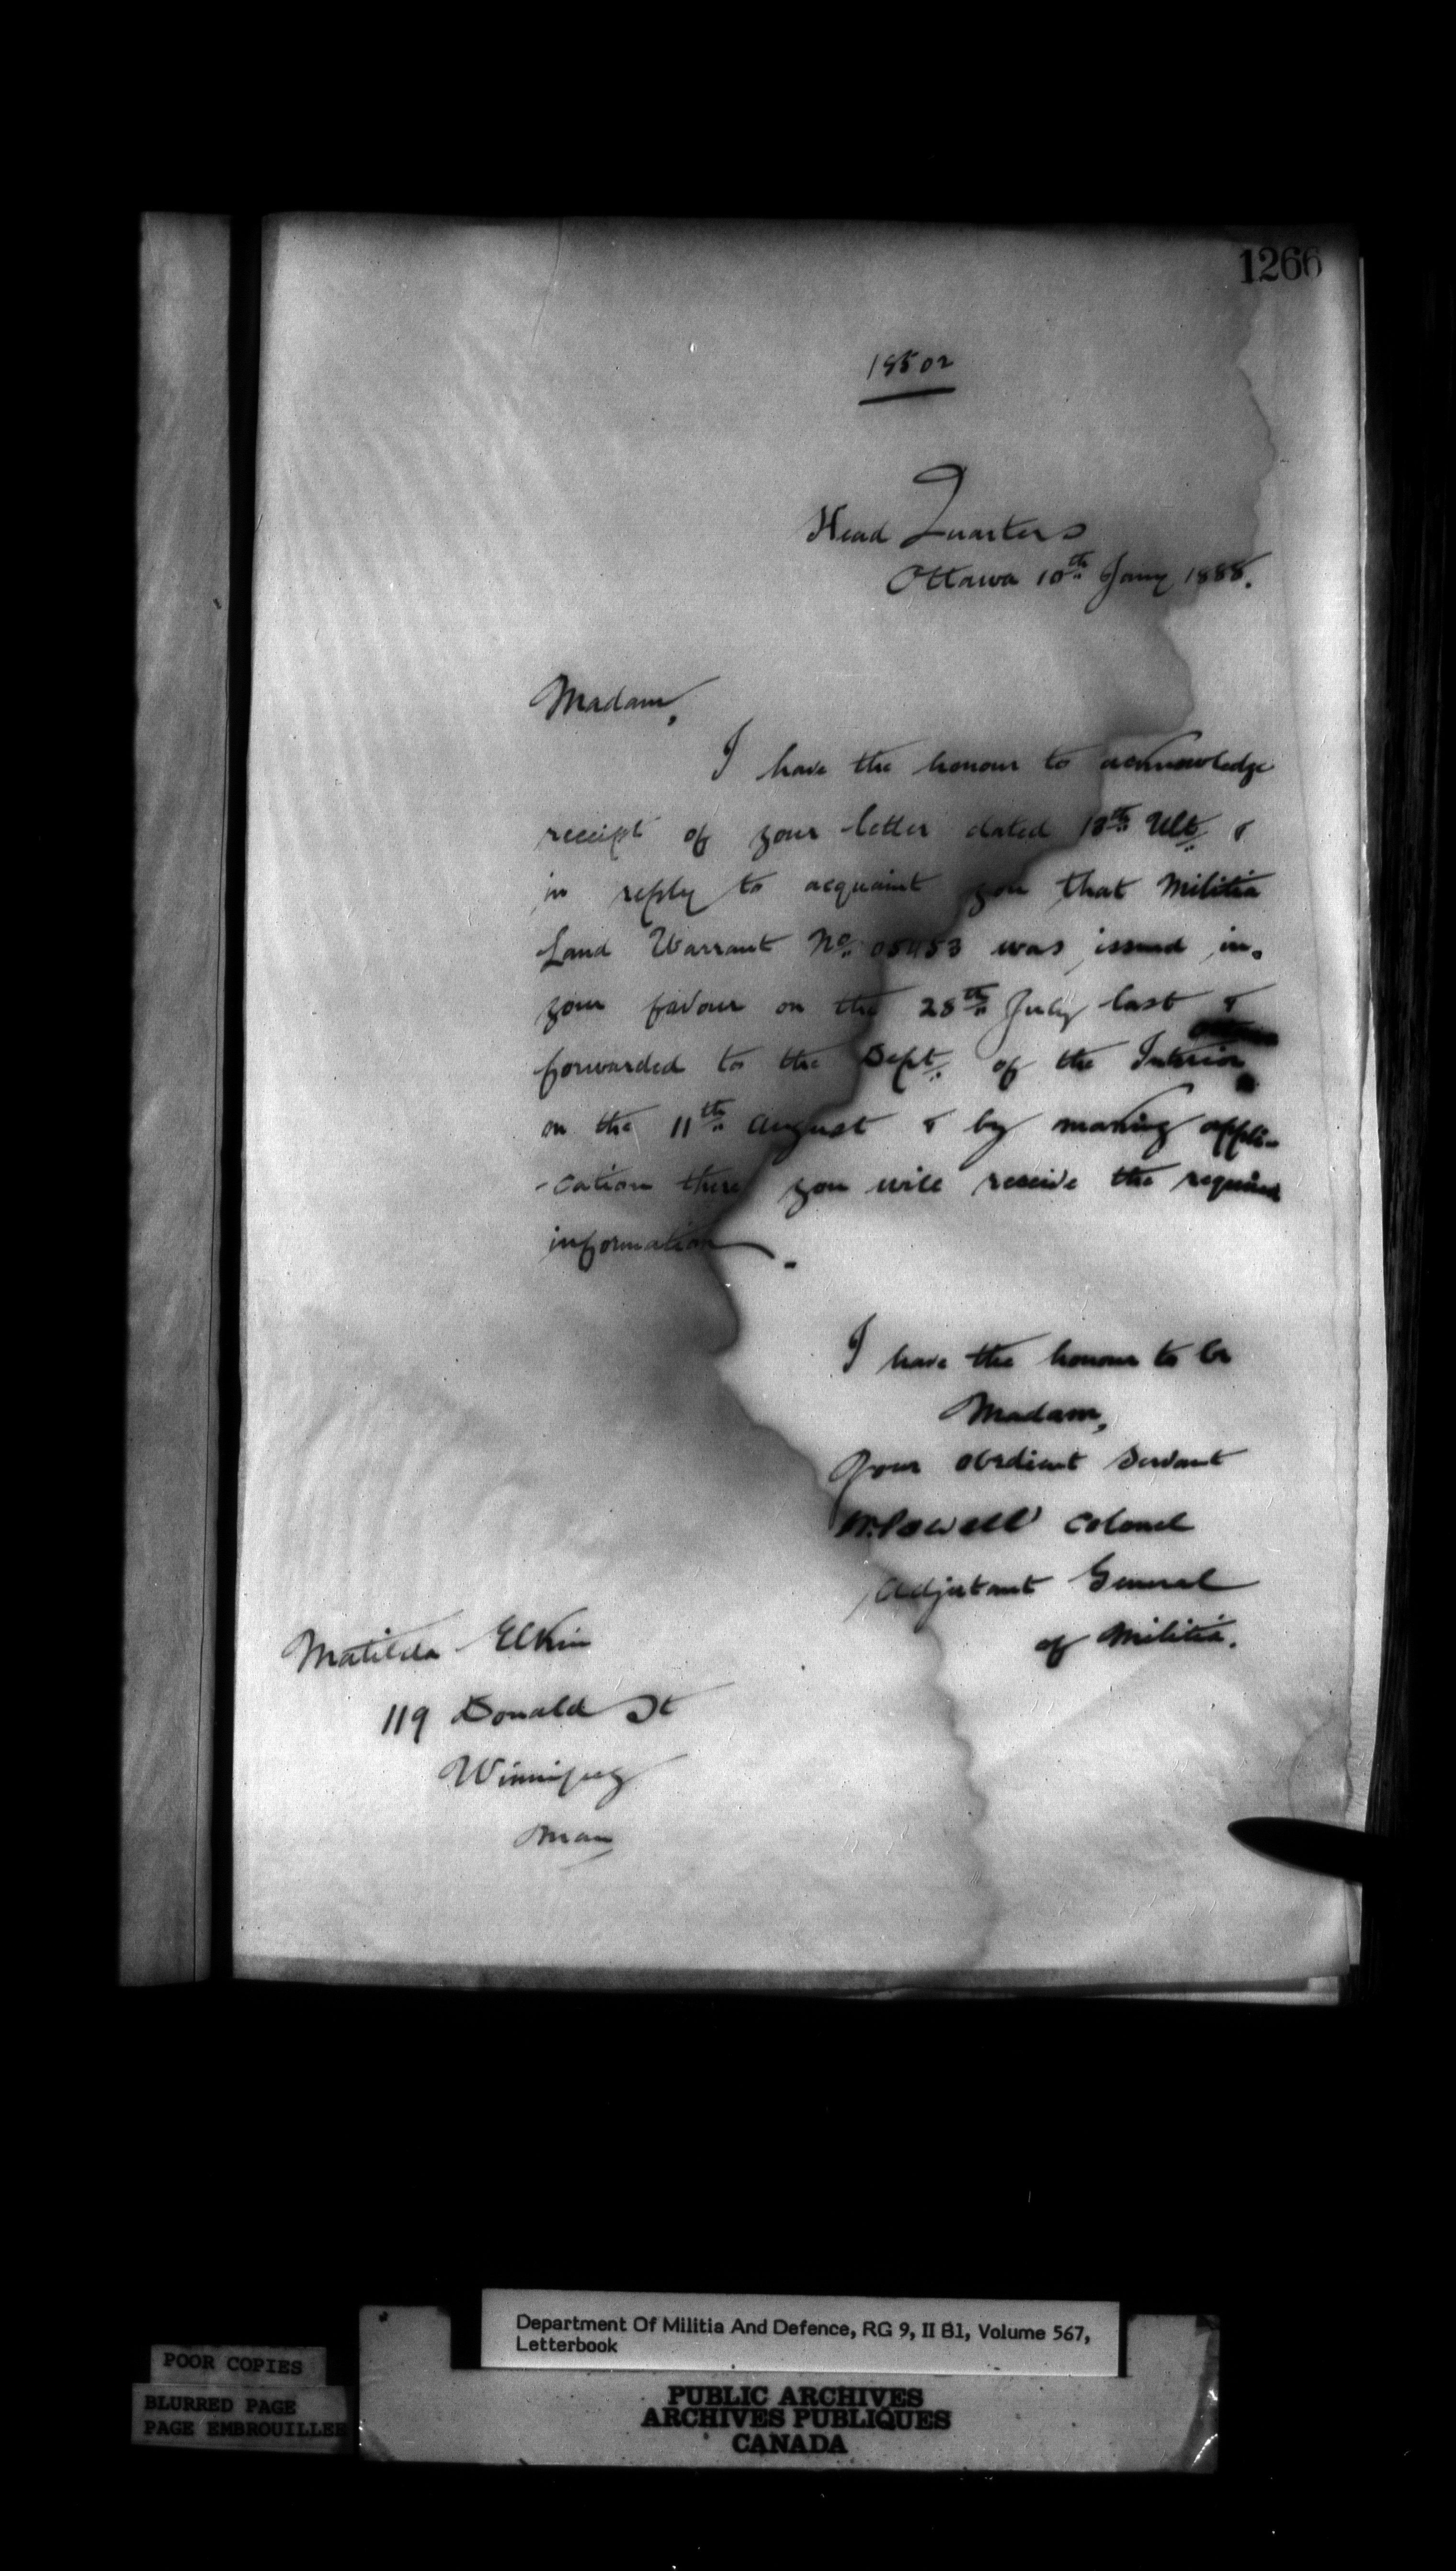 1266
Head Quarters
Ottawa 10th Jany 1888.
Madam,
I have the honour to acknowledge
receipt of your letter dated 13th Ult, &
in reply to acquaint you that Militia
Land Warrant No. 05453 was issued in
your favour on the 28th July last &
forwarded to the Dept. of the Interior
on the 11th August & by making appli-
-cation there you will receive the required
information.
I have the honour to be
Madam,
Your obedient Servant
W. Powell Colonel
Adjutant General
of Militia.
Matilda Elkin
119 Donald St
Winnipeg
Man
Department Of Militia And Defence, RG 9, II B1, Volume 567,
Letterbook
POOR COPIES
BLURRED PAGE
PAGE EMBROUILLEE
PUBLIC ARCHIVES
ARCHIVES PUBLIQUES
CANADA